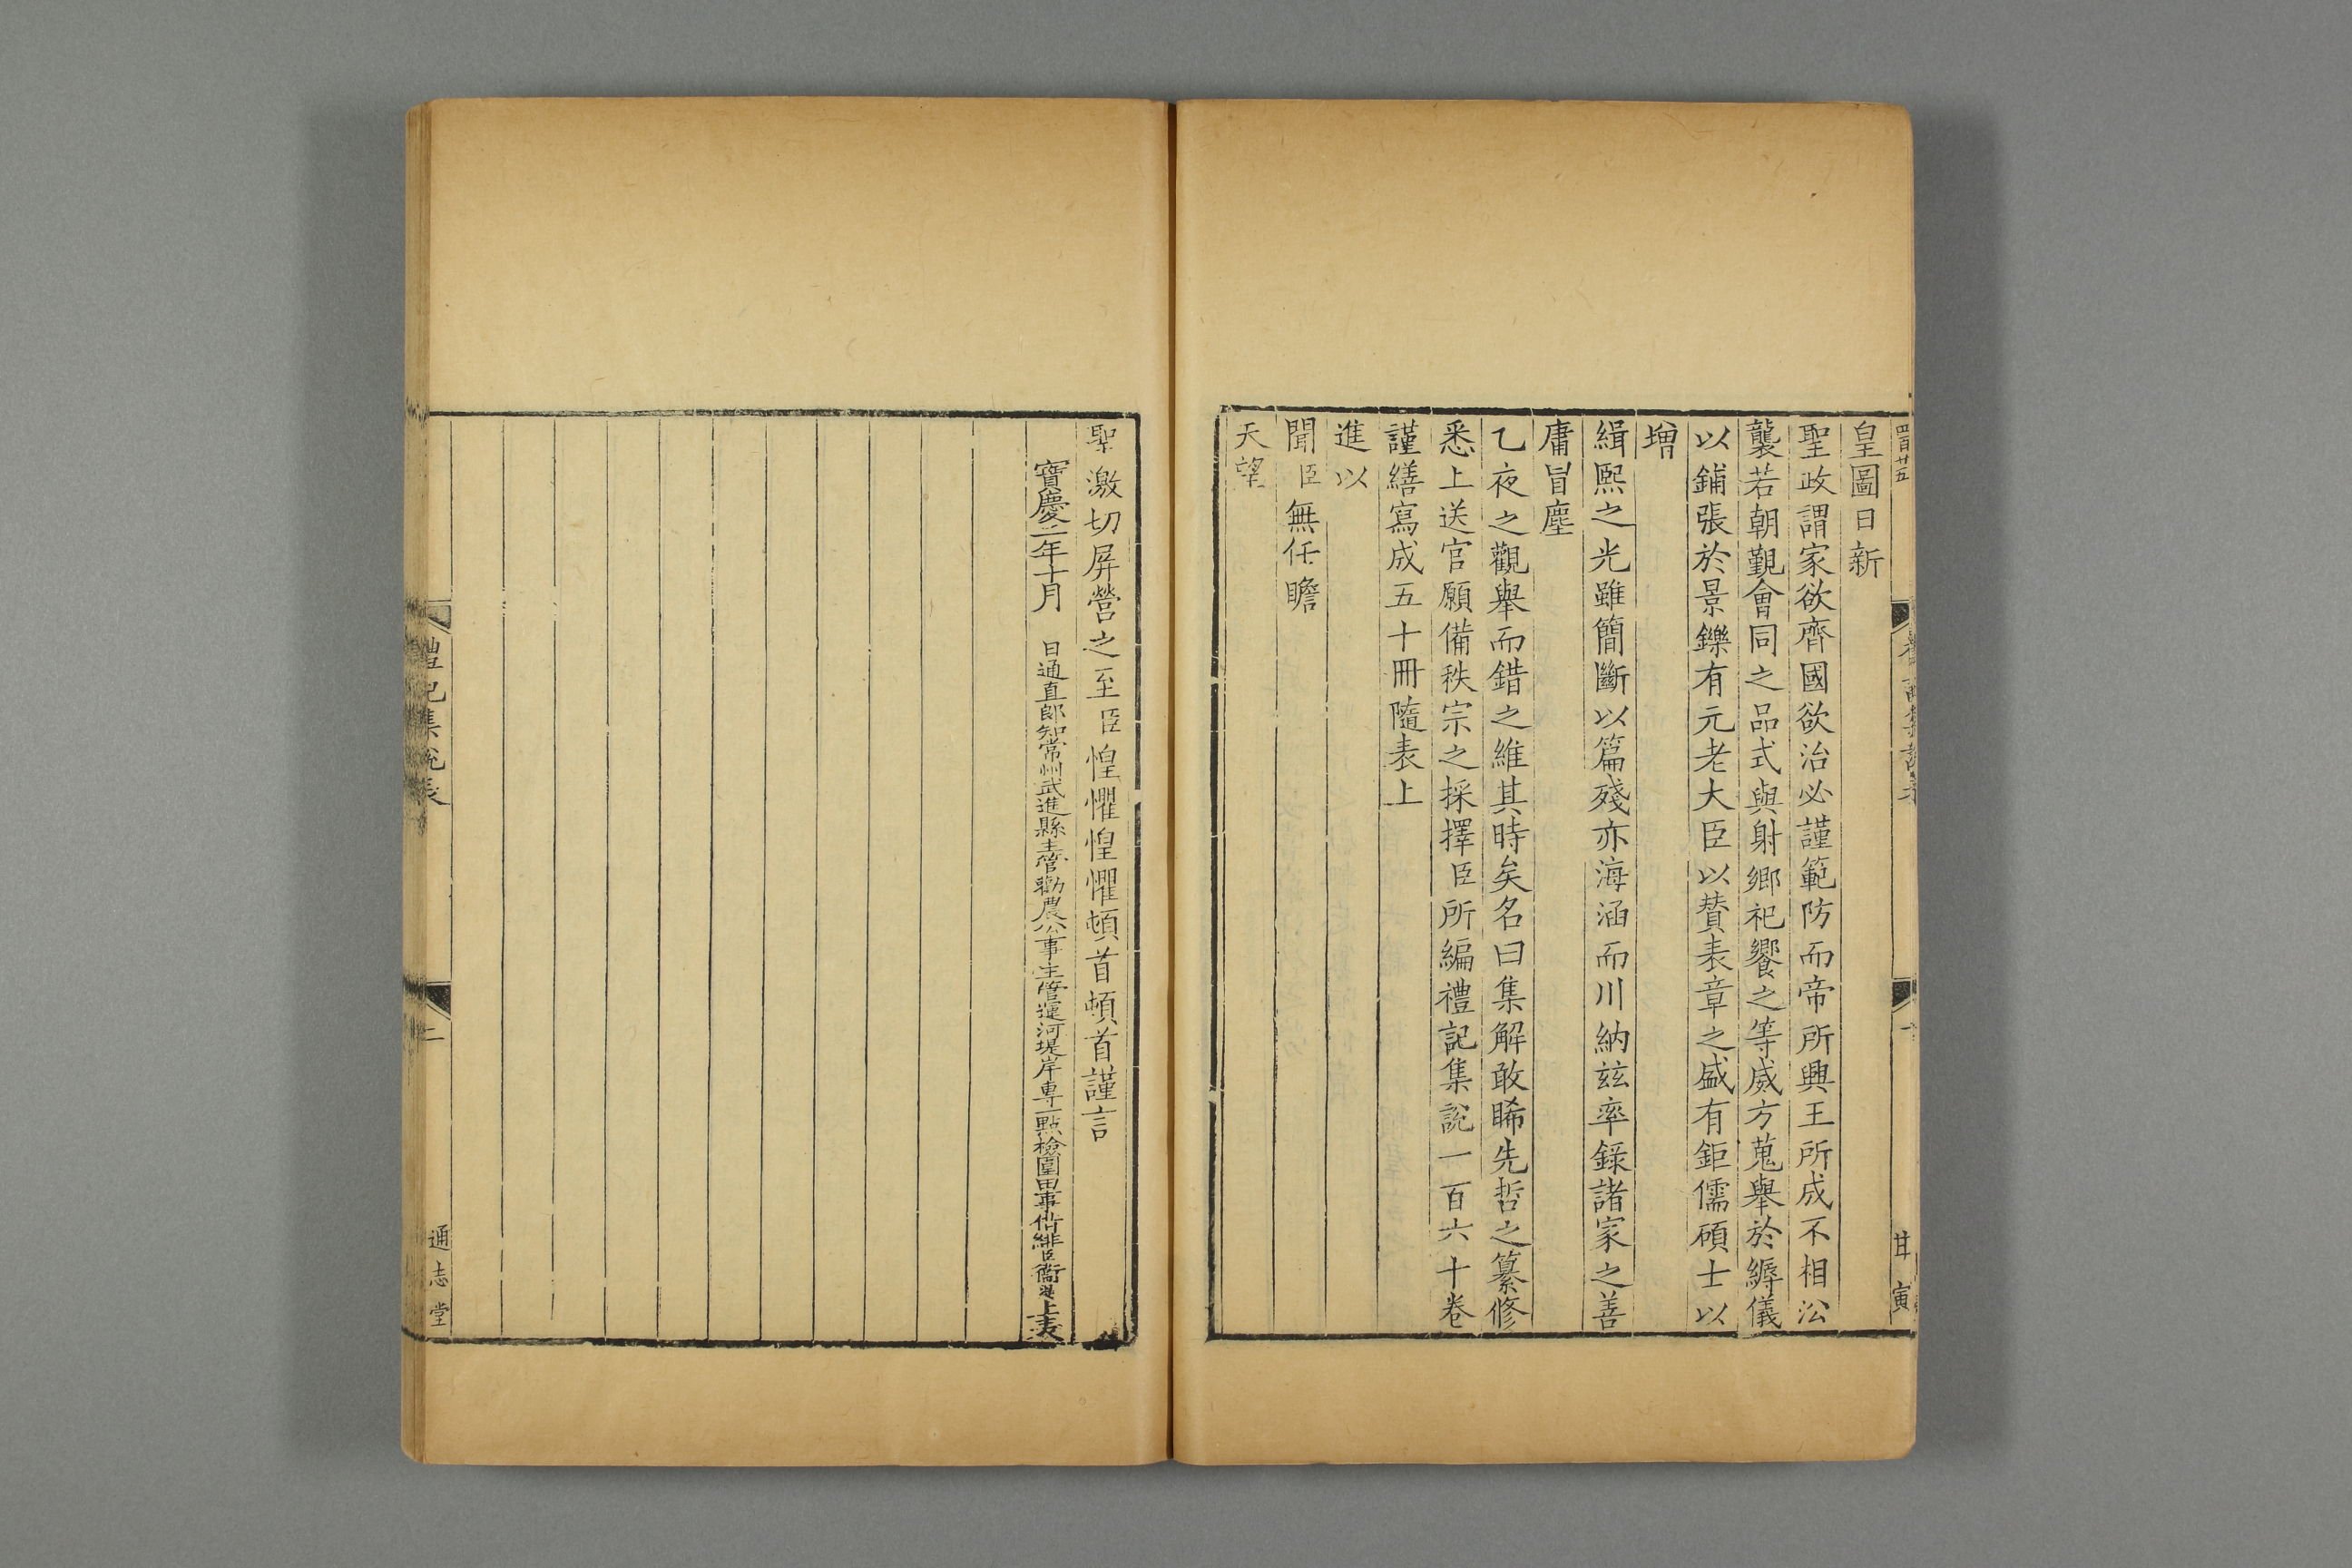 四百廿五
甘寅
皇圖日新
聖政謂家欲齊國欲治必謹範防而帝所興王所成不相㳂
襲若朝覲會同之品式與射鄉祀饗之等威方蒐舉於縟儀
以鋪張於景鑠有元老大臣以賛表章之盛有鉅儒碩士以
增
緝熙之光雖簡斷以篇殘亦海涵而川納兹率錄諸家之善
庸冒塵
乙夜之觀舉而錯之維其時矣名曰集解敢睎先哲之纂修
悉上送官願備秩宗之採擇臣所編禮記集說一百六十卷
謹繕寫成五十冊隨表上
進以
聞臣無任瞻
天望
聖激切屏營之至臣惶懼惶懼頓首頓首謹言
寶慶二年十月 日通直郎知常州武進縣主管勸農公事主管運河堤岸專一點檢圍田事借緋臣衞湜上表
禮記集說表
二
通志堂